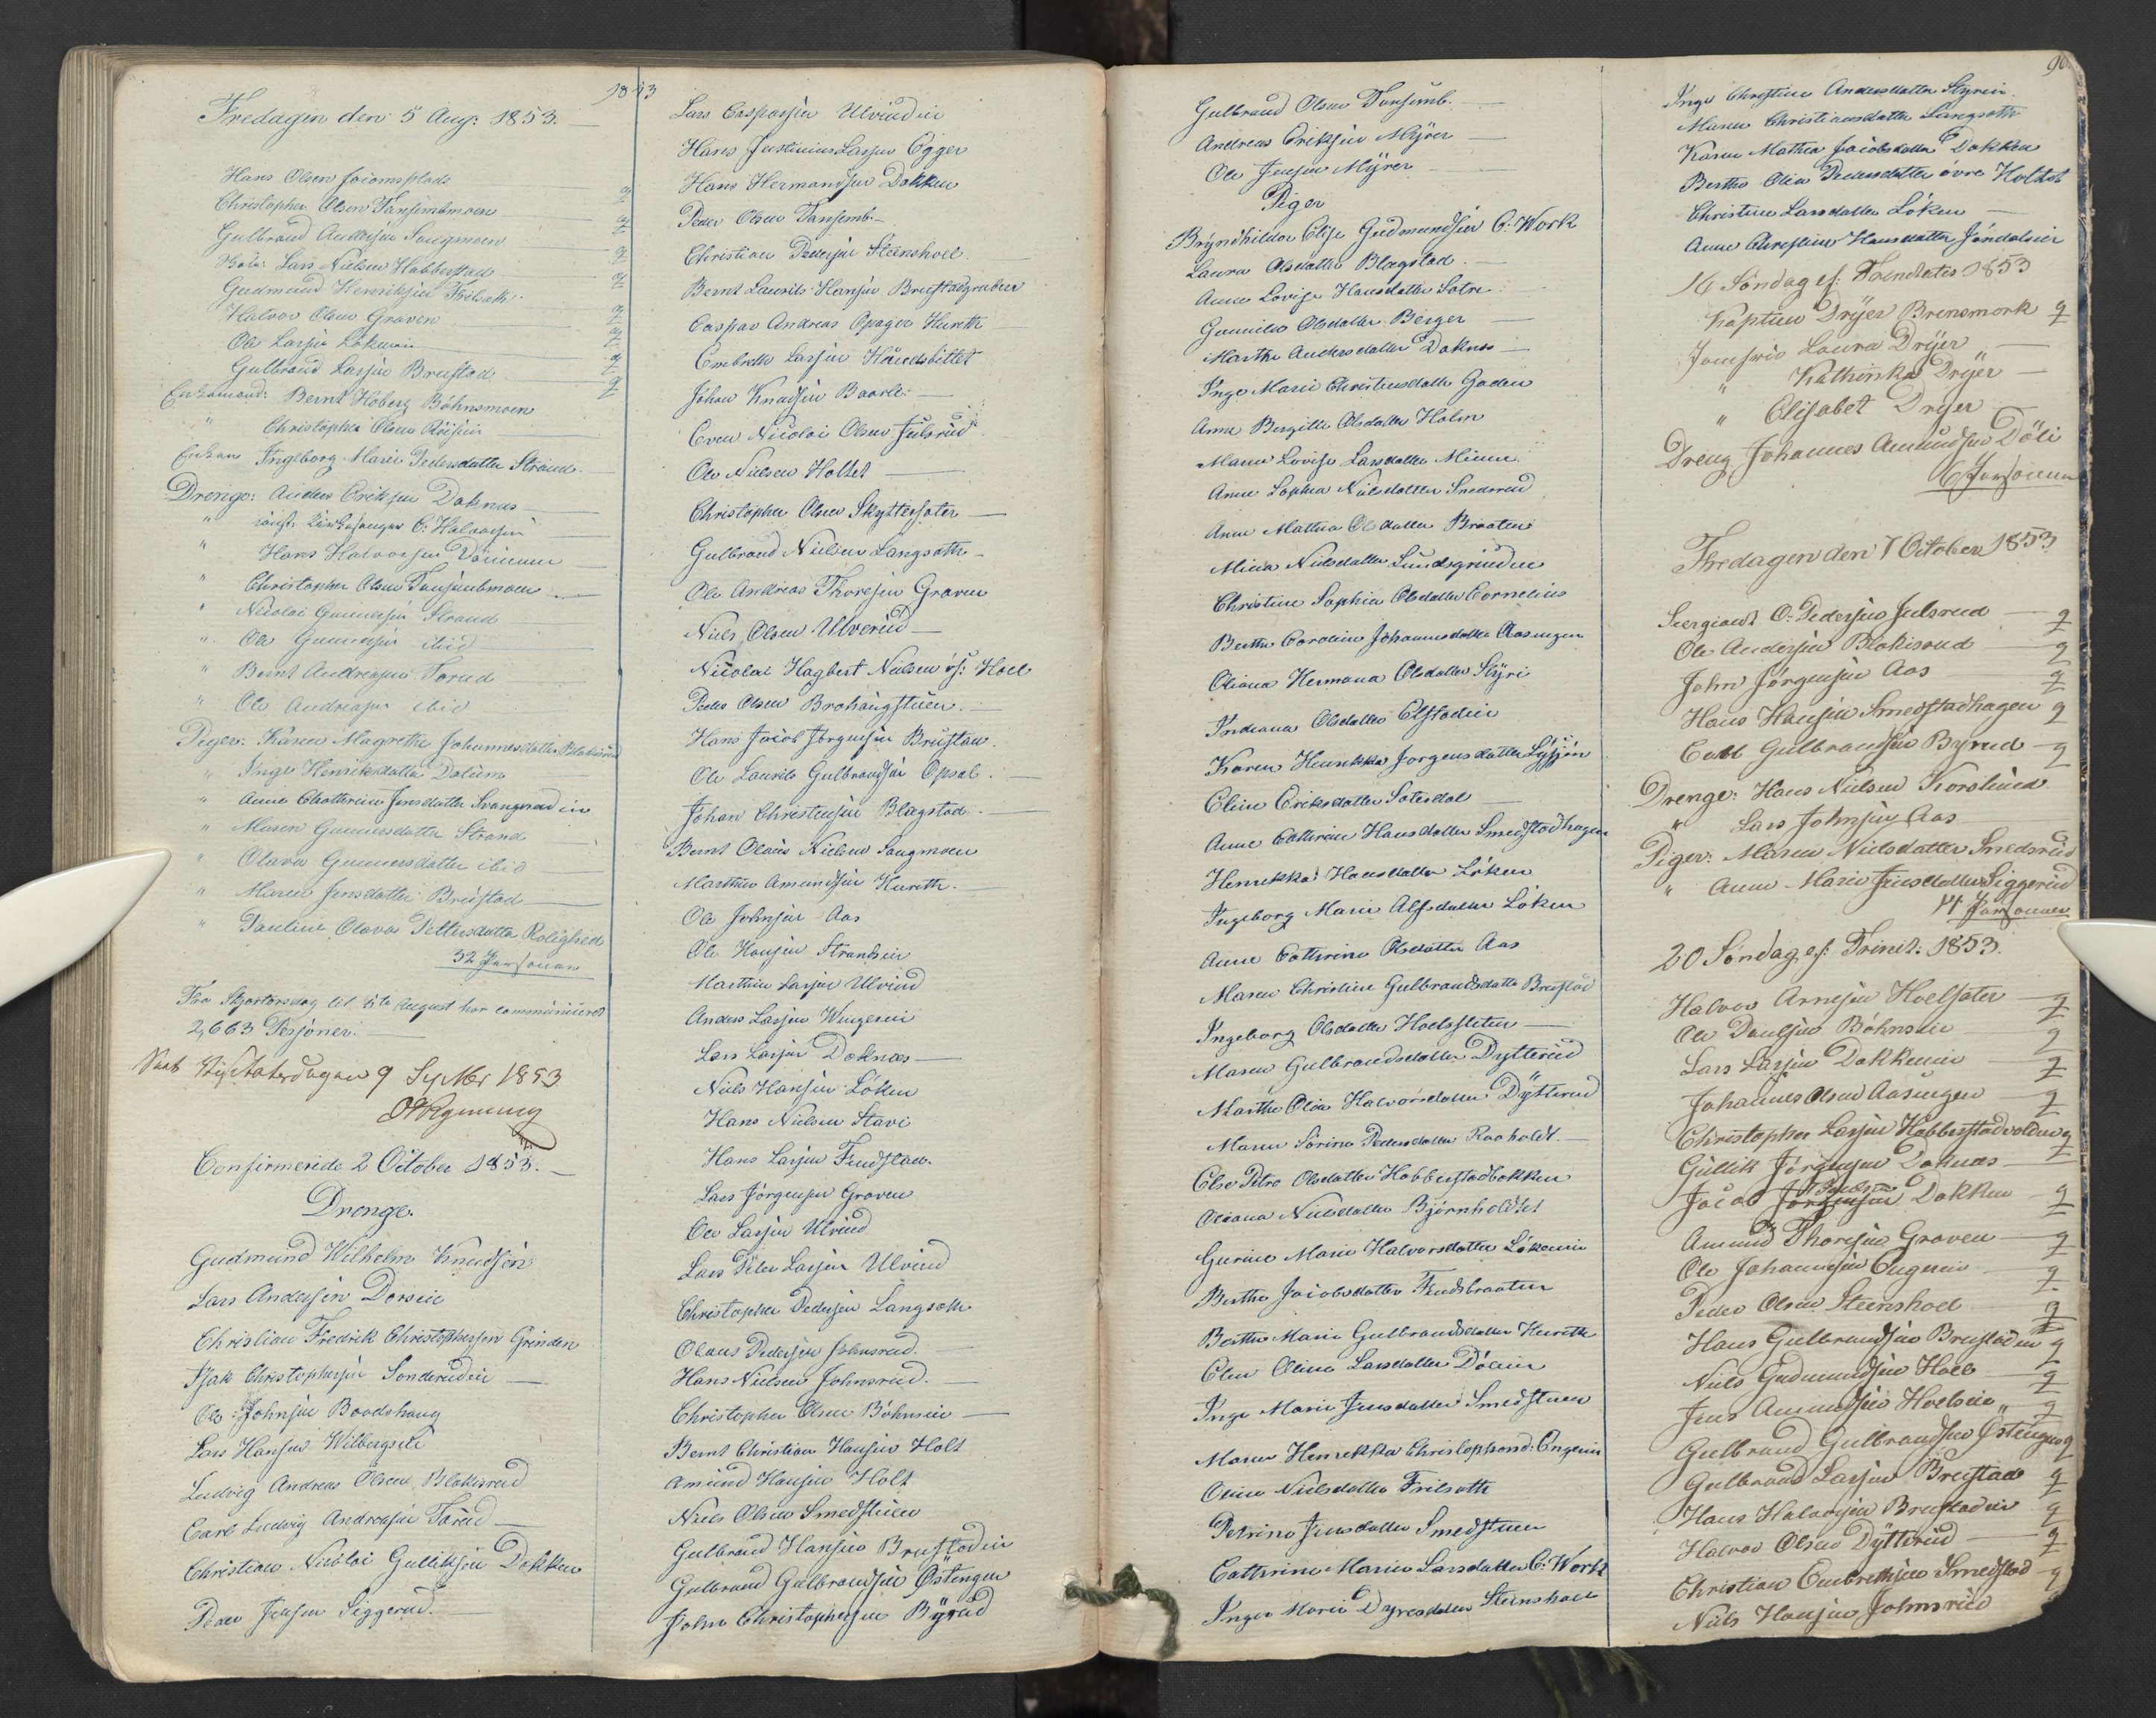 1853
Fredagen den 5 Aug: 1853.
Hans Olsen Joiomsplads
Christopher Olsen Tansembmoen q
Gulbrand Andersen Saugmoen q
Lars Nielsen Habberstad q
Gudmund Henriksen Frilsæt q
Halvor Olsen Graven q
Ole Larsen Løkeneie q
Gulbrand Larsen Brustad q
Enkemand: Bernt Hoberg Bøhnsmoen q
" Christopher Olsen
Enken Ingeborg Marie Pedersdatter Strand
Drenge: Anders Eriksen Doknæs
" Kirkesanger C: Halvorsen
" Hans Halvorsen
" Christopher Olsen Tansembmoen
" Nicolai Gunnersen Strand
" Ole Gunnersen ibid
" Bernt Andreasen Tørud
" Ole Andreasen ibid
Piger: Karen Magrethe Johannesdatter Blakisrud
" Inge Henriksdatter Dalum
" Anne Chatterine Jensdatter
" Maren Gunnersdatter Strand
" Olava Gunnersdatter ibid
" Maren Jensdatter Brustad
" Pauline Olava Pettersdatter Rolighed
32 Personer
Fra Skjærtorsdag til 5te August har communiceret
2,663 Personer.
Visitatsdagen 9 Septbr 1853
Confirmerede 2 October 1853.
Drenge.
Gudmund Wilhelm Knudsen
Lars Andersen Dorseie
Christian Fredrik Christophersen Grinden
Isak Christophersen Sonderudeie
Ole Johnsen Bordshaug
Lars Hansen Wilbergseie
Ludvig Andreas Olsen Blakisrud
Carl Ludvig Andreasen Tørud
Christian Nicolai Gulliksen Dokken
Peder Jensen Siggerud.
Lars Caspersen Ulvindeie
Hans Justinius Larsen Egger
Hans Hermandsen Dokken
Peder Olsen Tansemb.
Christian Pedersen Steenshoel.
Bernt Laurits Hansen Brustadgruben
Caspar Andreas Opager Hurith
Embreth Larsen
Johan Knudsen Baarli
Even Nicolai Olsen Julsrud
Ole Nielsen Holtet
Christopher Olsen Skyttesæter
Gulbrand Nielsen Langsæth
Ole Andreas Thoresen Graven
Niels Olsen Ulverud
Nicolai Hagbert Nielsen øf: Hoel
Peder Olsen Brohaugstuen.
Hans Jacob Jørgensen Brustad.
Ole Laurits Gulbrandsen Opsal.
Johan Christensen Blagstad
Bernt Olaus Nielsen Saugmoen
Marthin Amundsen Hurith.
Ole Johnsen Aas
Ole Hansen Strandeie
Marthin Larsen Ulvind
Anders Larsen Wengereie
Lars Larsen Doknæs
Niels Hansen Løken
Hans Nielsen Stavi
Hans Larsen Findstad.
Lars Jørgensen Graven
Ole Larsen Ulvind
Lars Peter Larsen Ulvind
Christopher Pedersen Langsæth
Olaus Pedersen Johnsrud.
Hans Nielsen Johnsrud.
Christopher Olsen Bøhnseie
Bernt Christian Hansen Holt
Amund Hansen Holt
Niels Olsen Smedstuen
Gulbrand Hansen Brustadeie
Gulbrand Gulbrandsen Østengen
John Christophersen Byrud
Gulbrand Olsen Tansemb.
Andreas Eriksen Myrer
Ole Jensen Myrer
Piger
Bryndhilda Elise Gudmundsen E: Work
Laura Olsdatter Blagstad.
Anne Lovise Hansdatter Sætre
Gunnild Olsdatter Berger
Marthe Andersdatter Doknæs
Inge Marie Christiansdatter Gaden
Anne Birgitte Olsdatter Holm
Maren Lovise Larsdatter Minne
Anne Sophia Nielsdatter Smedsrud
Anne Mathea Olsdatter Braaten
Mina Nielsdatter Sundsgrinden
Christine Sophia Olsdatter Cornelius
Berthe Caroline Johannesdatter Aasengen
Oliana Hermana Olsdatter Styri
Indiana Olsdatter Elstadeie
Karen Henrikka Jorgensdatter Lysjøn
Eline Eriksdatter Sotesdal
Anne Cathrine Hansdatter Smedstadhagen
Henrikka Hansdatter Løken
Ingeborg Marie Alfsdatter Løken
Anne Cathrine Olsdatter Aas
Maren Christine Gulbrandsdatter Brustad
Ingeborg Olsdatter Hoelssleten
Maren Gulbrandsdatter Dytterud
Marthe Olea Halvorsdatter Dytterud
Maren Sørine Pedersdatter Raaholdt.
Else Petra Olsdatter Habberstadbakken
Oliana Nielsdatter Bjørnholdtet
Gurine Marie Halvorsdatter Løkeneie
Berthe Jacobsdatter Findsbraaten
Berthe Marie Gulbrandsdatter Hurith
Elen Oline Larsdatter Døleie
Inge Marie Jensdatter Smedstuen
Maren Henrikka Christophersd: Engeneie
Oline Nielsdatter Frilsæth
Petrine Jensdatter Smedstuen
Cathrine Marie Larsdatter E: Work
Inger Marie Dyresdatter Steinshoel
90.
Inge Christine Andersdatter Styrieie.
Maren Christiansdatter Langsæth
Karen Mathea Jacobsdatter Dokken
Berthe Olea Pedersdatter øvre Holtet
Christine Larsdatter Løken
Anne Christine Hansdatter Jøndalseie
16 Søndag ef: Trinitatis 1853
Kaptein Dryer Brensmork q
Jomfrue Laura Dryer
" Kathinka Dryer
" Elisabet Dryer
Dreng Johannes Amundsen Döli
6 Personer
Fredagen den 7 October 1853
Sergiant O: Pedersen Julsrud q
Ole Andersen Blakisrud q
John Jørgensen Aas q
Hans Hansen Smedstadhagen q
Gulbrandsen Byrud q
Drenge: Hans Nielsen Korslund
" Lars Johnsen Aas
Piger: Maren Nielsdatter Smedsrud
" Anne Marie Jensdatter Siggerud
14 Personer
20 Søndag ef: Trinit: 1853.
Halvor Arnesen Hoelsæter q
Ole Paulsen Bøhnseie q
Lars Larsen Dokkeneie q
Johannes Olsen Aasengen q
Christopher Larsen Habberstadvolden q
Gullik Jørgensen Doknæs q
Jacob Jørgensen Dokken q
Amund Thoresen Graven q
Ole Johannesen Engeneie q
Peder Olsen Steenshoel q
Hans Gulbrandsen Brustadeie q
Niels Gudmundsen Hoel q
Jens Amundsen Hoelseie q
Gulbrand Gulbrandsen Østengen q
Gulbrand Larsen Brustad q
Hans Halvorsen Brustadeie q
Halvor Olsen Dytterud q
Christian Embrethsen Smedstad q
Niels Hansen Johnsrud